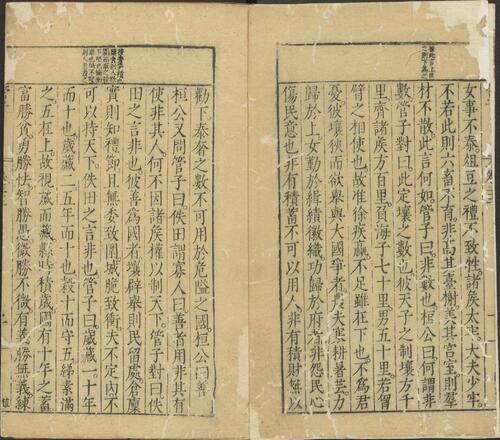 女事不泰俎豆之禮不致牲諸矦太牢大夫少牢
不若此則六畜不育非高其臺榭美其宮室則羣
材不散此言何如管子曰非數也桓公曰何謂非
數管子對曰此定壤之數也彼天子之制壤方千
里齊諸矦方百里負海子七十里男五十里若胷
臂之相使也故准徐疾羸不足雖在下也不為君
憂彼壤狹而欲舉與大國爭者農夫寒耕暑芸力
歸於上女勤於緝績徽織功歸於府者非怨民心
傷民意也非有積蓄不可以用人非有積財無以
勸下泰奢之數不可用於危隘之國桓公曰善
桓公又問管子曰佚田謂寡人曰善者用非其有
使非其人何不因諸矦權以制天下管子對曰佚
田之言非也彼善為國者壤辟舉則民留處倉廩
實則知禮節且無委致圍城脆致衝夫不定內不
可以持天下佚田之言非也管子曰歲藏一十年
而十也歲藏二五年而十也穀十而守五綈素滿
之五在上故視歲而藏縣時積歲國有十年之蓄
富勝貧勇勝怯智勝愚微勝不微有義勝無義練